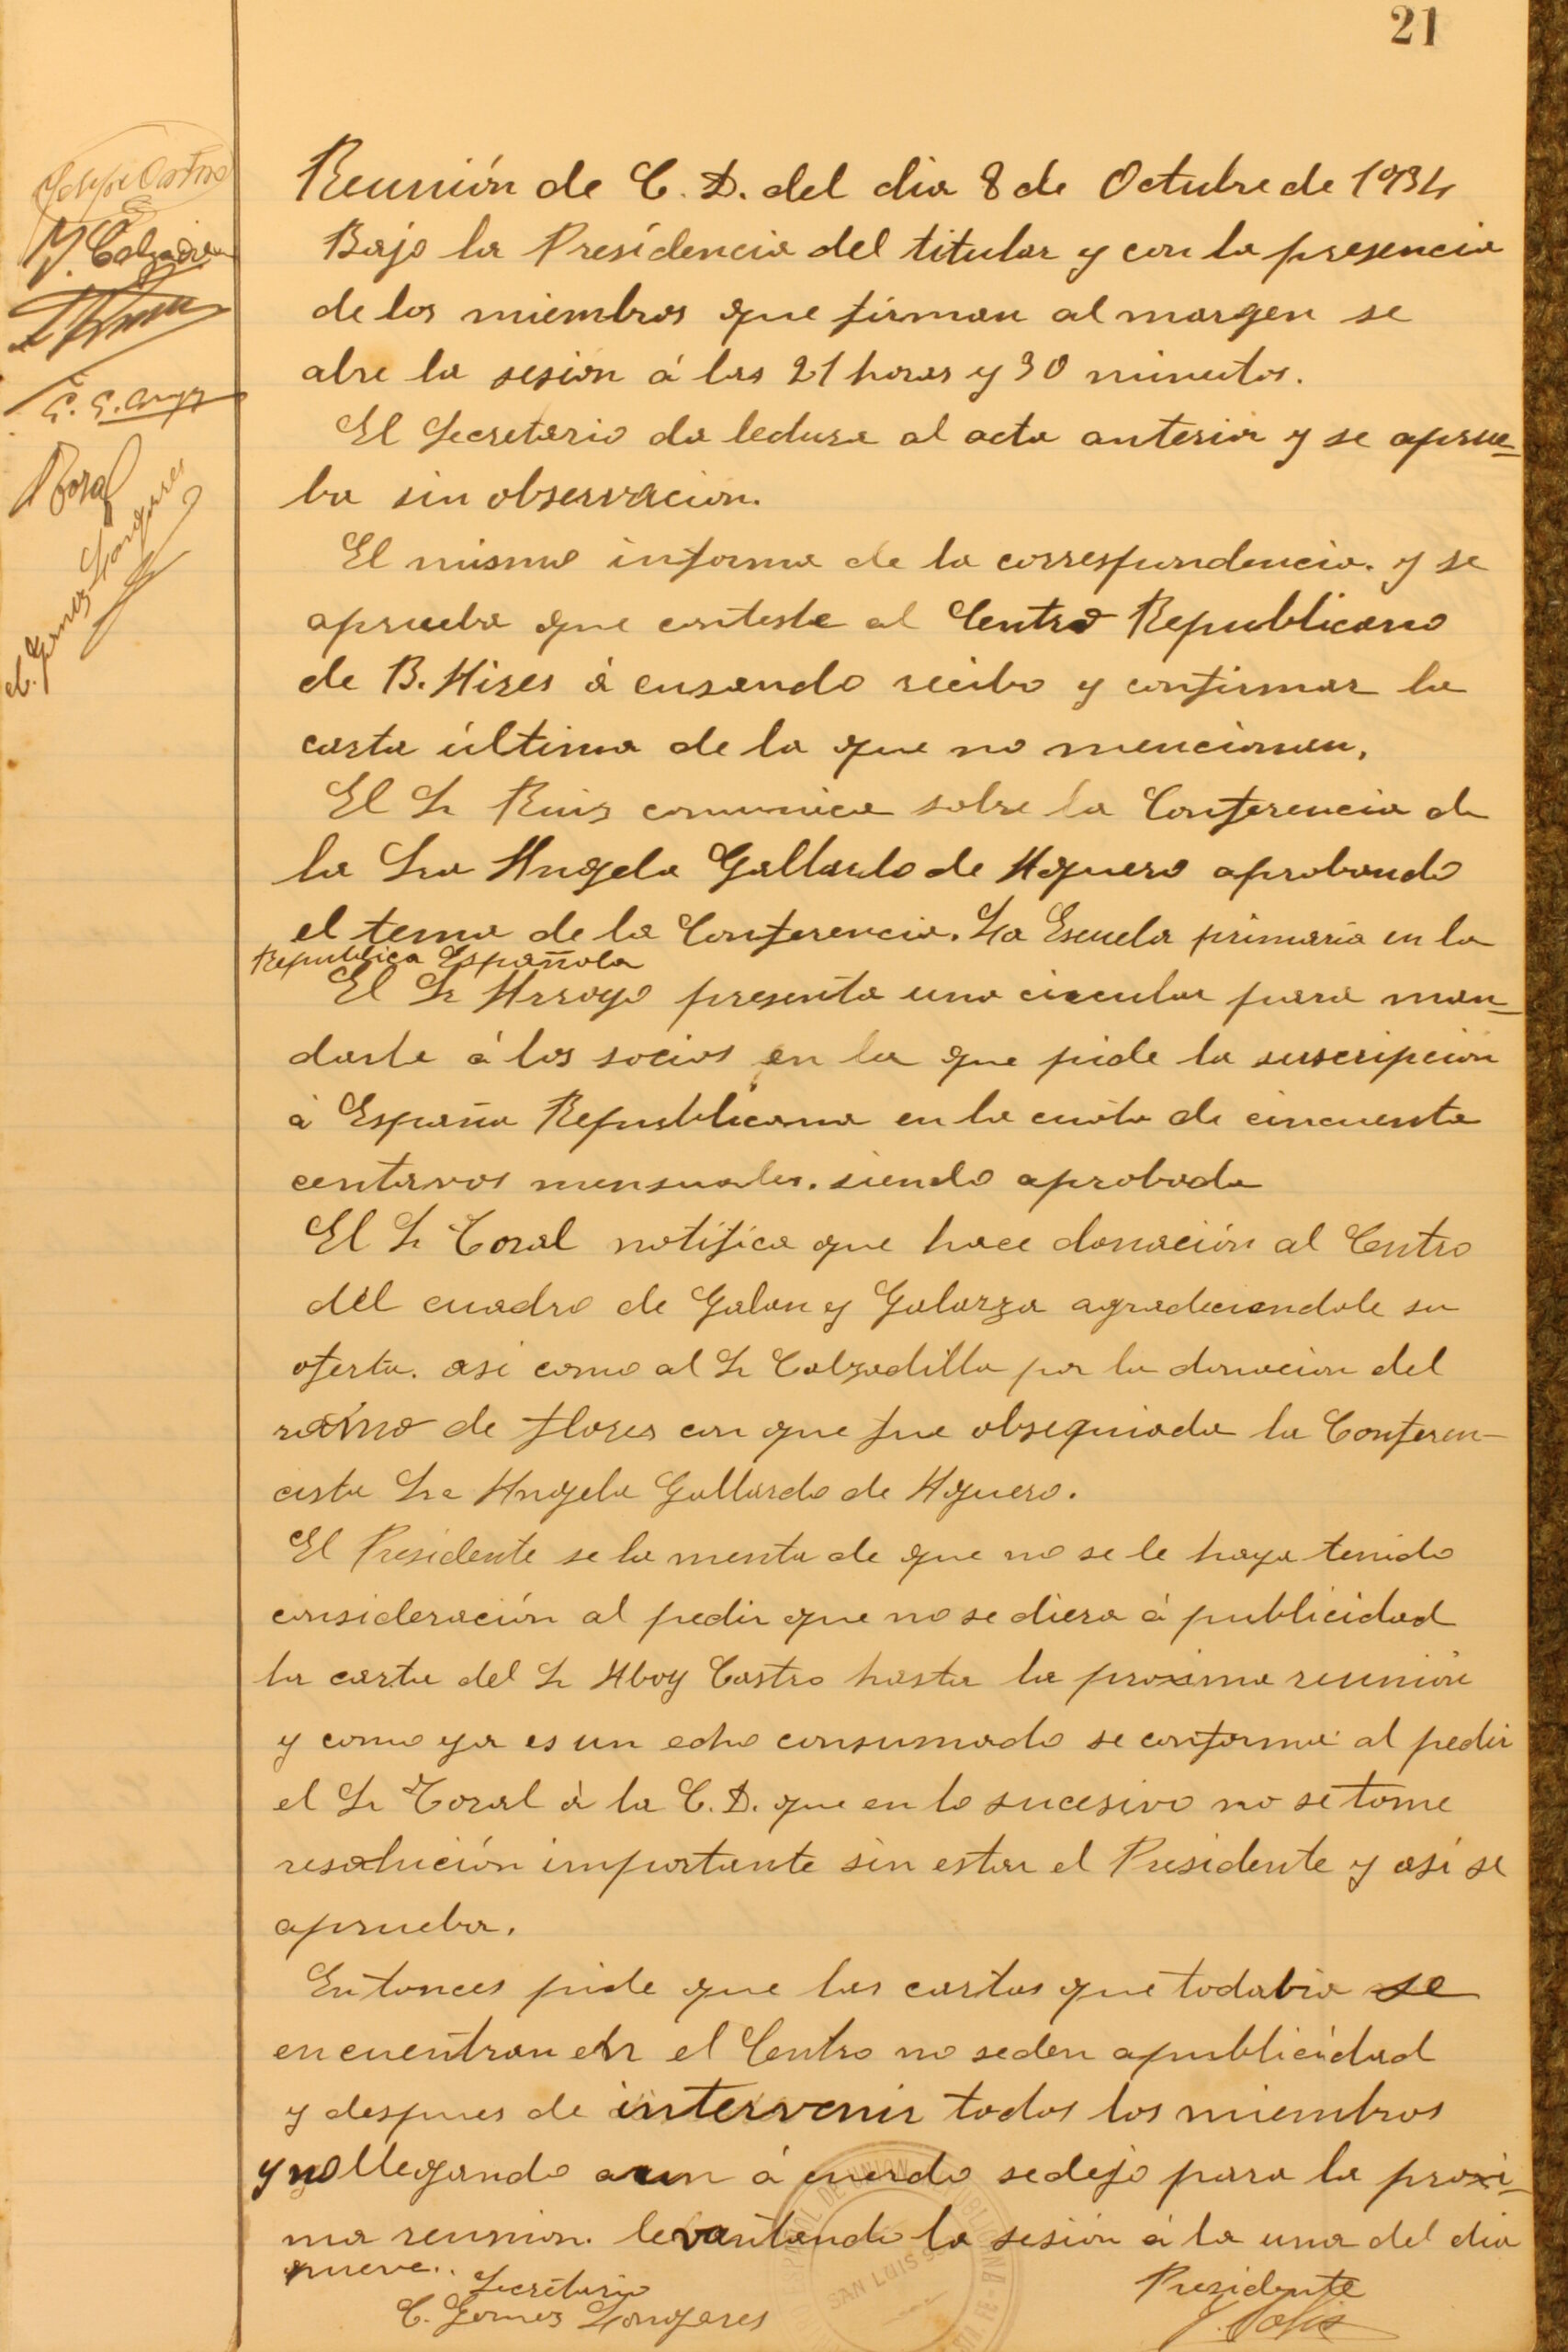 21
Reunión de C. D. del dia 8 de Octubre de 1934
Bajo la Presidencia del titular y con la presencia
de los miembros que firman al margen se
abre la sesion á las 21 horas y 30 minutos.
El Secretario da lectura al acta anterior y se aprue-
ba sin observacion.
El mismo informa de la correspondencia. y se
aprueba que conteste al Centro Republicano
de B. Aires á cusando recibo y confirmar la
carta última de la que no mencionan.
El Sr Ruiz comunica sobre la Conferencia de
la Sra Angela Gallardo de Aguero aprobando
el tema de la Conferencia. La Escuela primaria en la
Republica Española
El Sr Arroyo presenta una circular para man-
darla á los socios en la que pide la suscripcion
á España Republicana en la cuota de cincuenta
centavos mensuales. siendo aprobada
El Sr Toral notifica que hace donación al Centro
del cuadro de Galan y Galarza agradeciendole su
oferta. asi como al Sr Calzadilla por la donacion del
ramo de flores con que fue obsequiada la Conferen-
cista Sra Angela Gallardo de Aguero.
El Presidente se la menta de que no se le haya tenido
consideración al pedir que no se diera á publicidad
la carta del Sr Aboy Castro hasta la proxima reunion
y como ya es un echo consumado se conforma al pedir
el Sr Toral á la C. D. que en lo sucesivo no se tome
resolución importante sin estar el Presidente y asi se
aprueba.
Entonces pide que las cartas que todabia se
encuentran en el Centro no seden apublicidad
y despues de intervenir todos los miembros
y no llegando aun á cuerdo sedejo para la proxi-
ma reunion. levantando la sesión á la una del dia
nueve..
Secretario
C. Gomez Longares
Presidente
J. Solis
Felipe Castro
J. Calzadilla
Toral
C. Gomez Longares
SAN LUIS